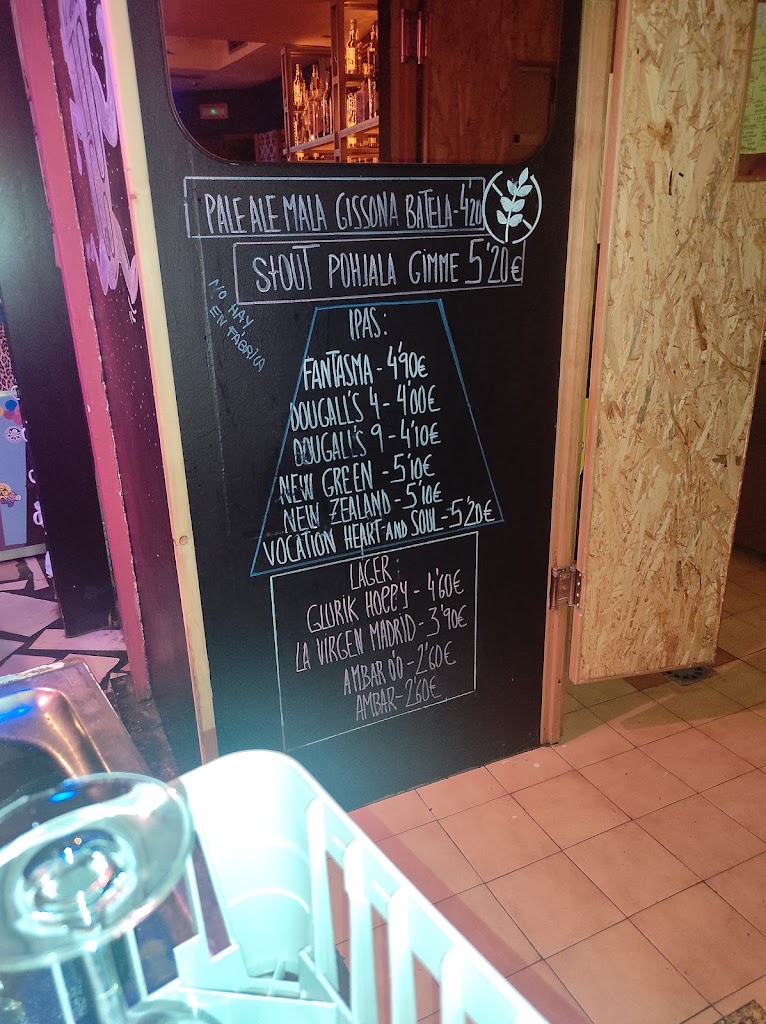 PALE ALE MALA GISSONA BATELA - 4'20
STOUT POHJALA GIMME 5'20€
NO HAY
EN FÁBRICA
IPAS:
FANTASMA - 4'90€
DOUGALL'S 4 - 4'00€
DOUGALL'S 9 - 4'10€
NEW GREEN - 5'10€
NEW ZEALAND - 5'10€
VOCATION HEART AND SOUL - 5'20€
LAGER:
GLURIK HOPPY - 4'60€
LA VIRGEN MADRID - 3'90€
AMBAR 0'0 - 2'60€
AMBAR - 2'60€